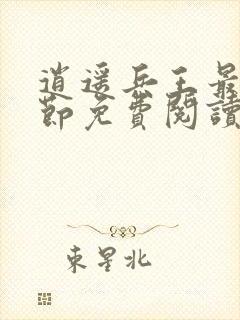 逍遥兵王最
節免費閱讀
東星北